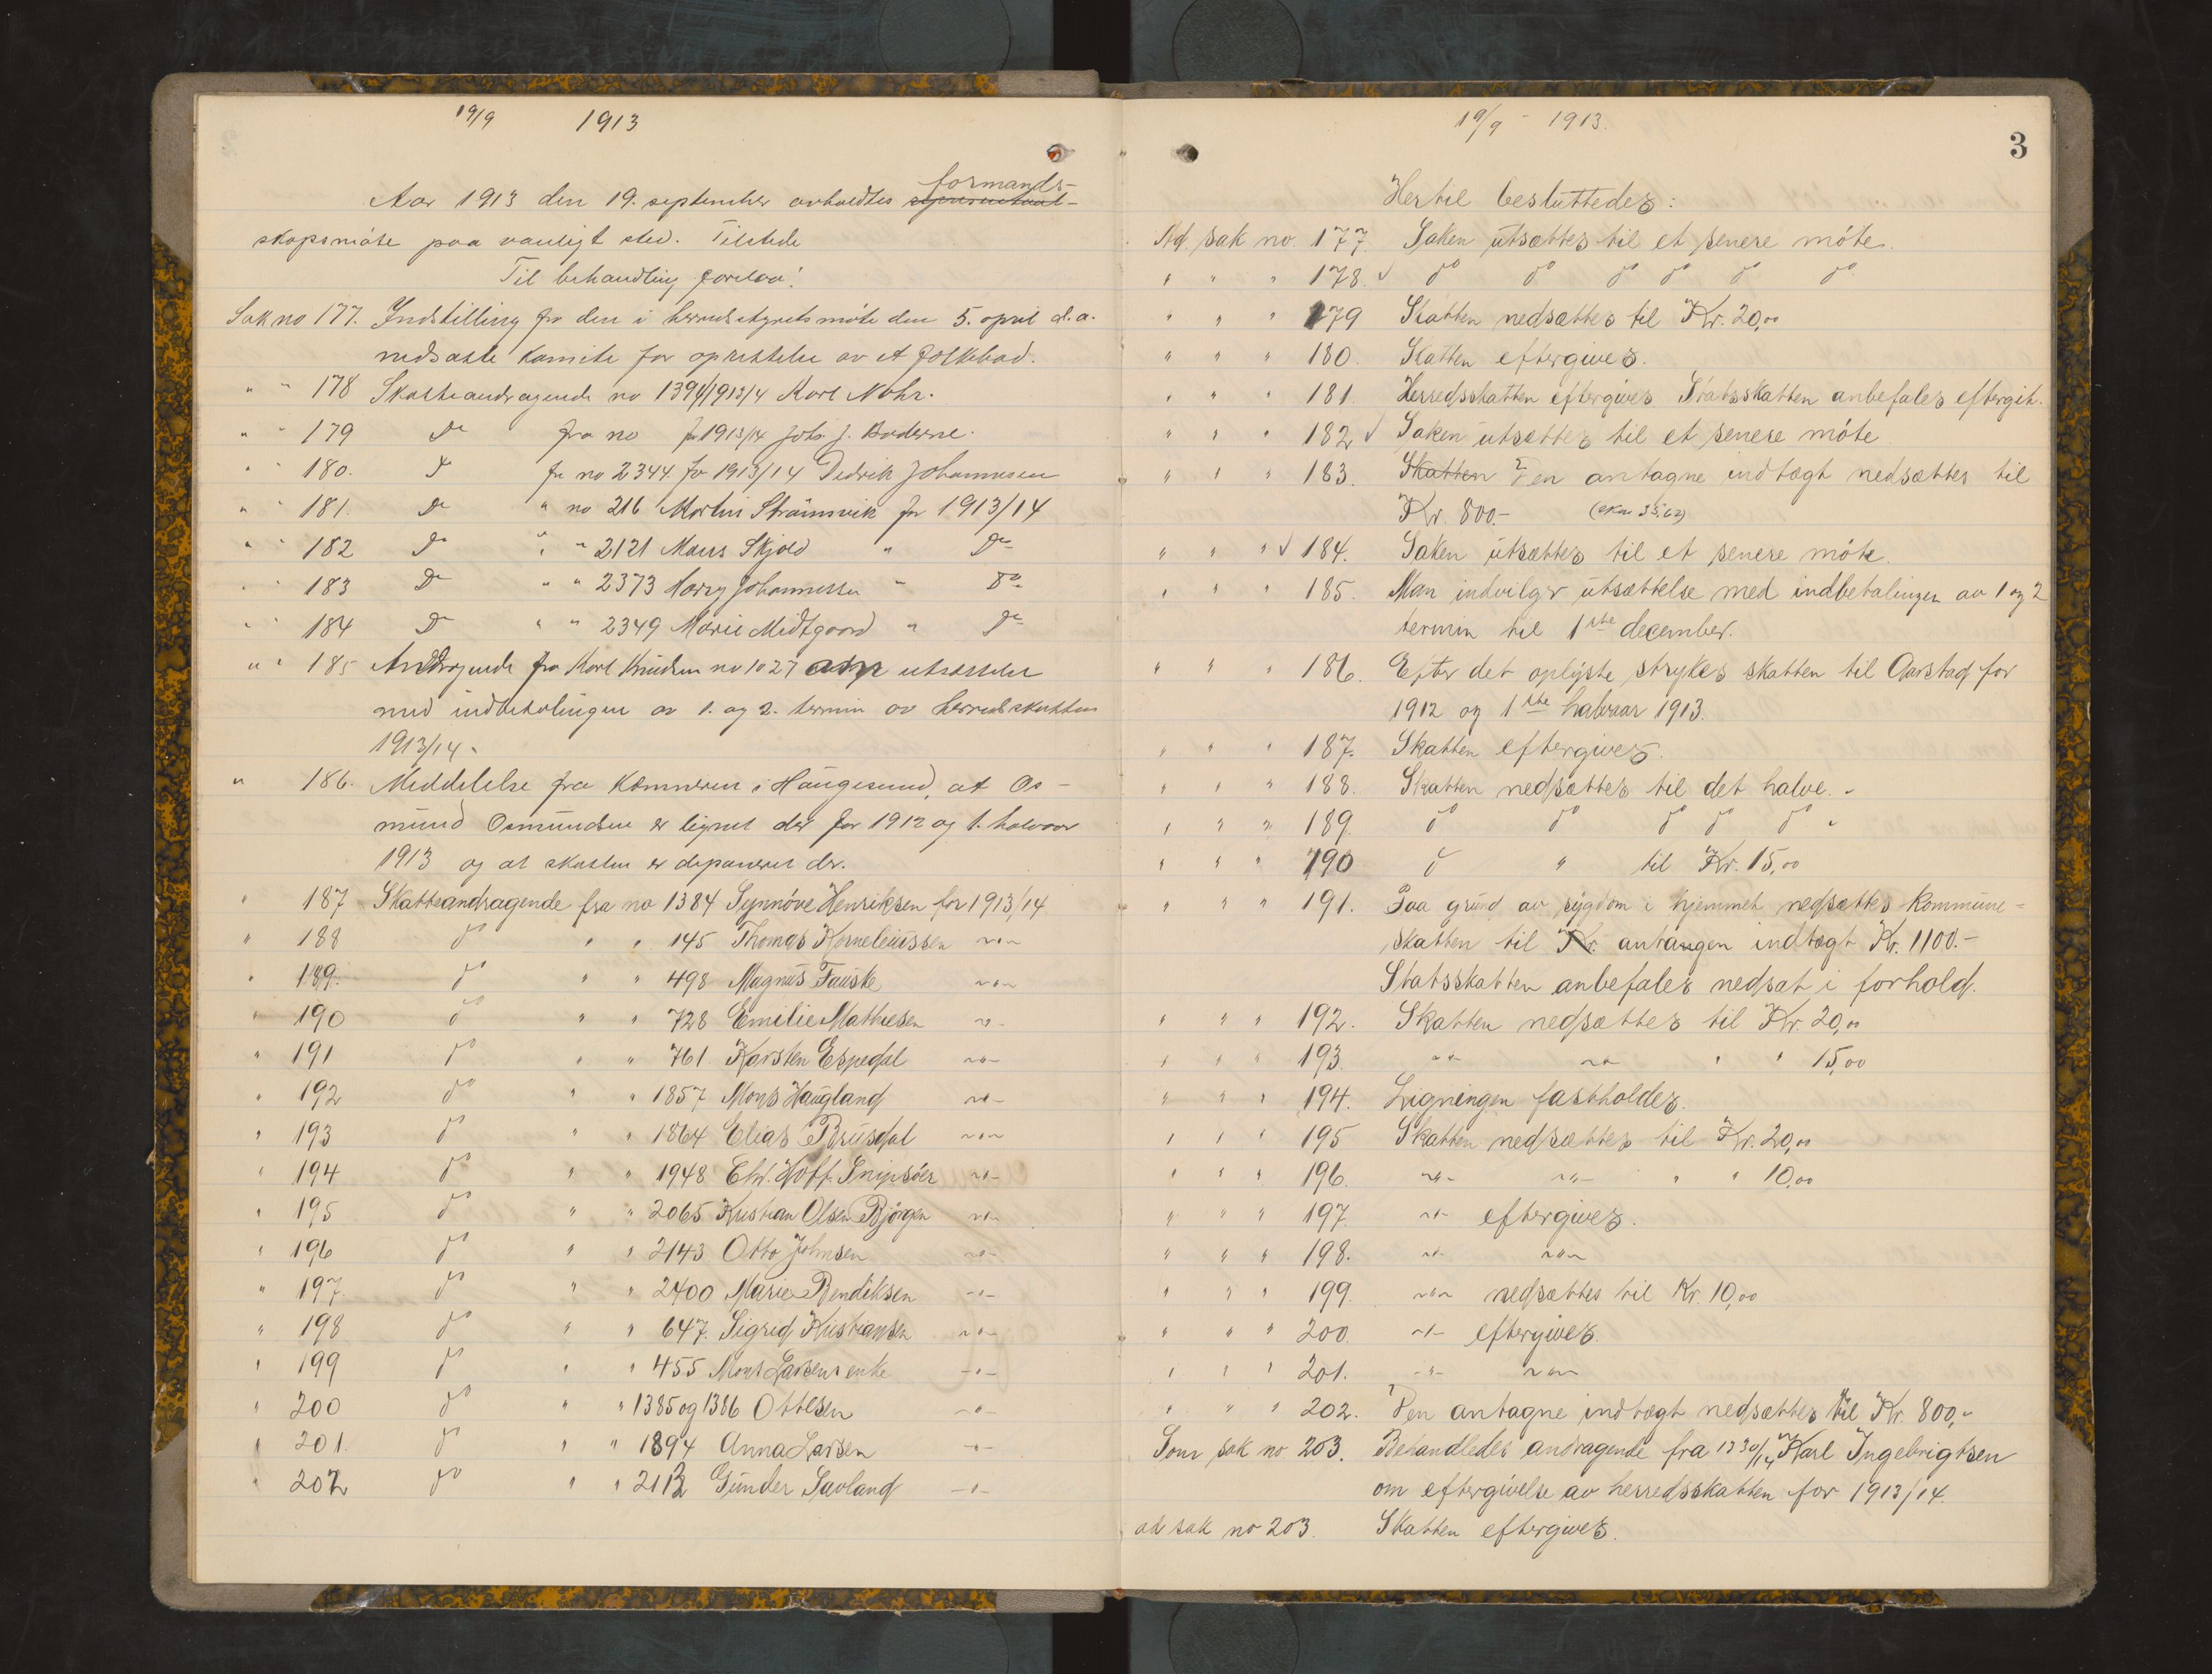 19/9 1913
formands-
Aar 1913 den 19. september avholdtes
skapsmöte paa vanligt sted. Tilstede
Til behandling forelaa:
Sak no 177. Indstilling fra den i herredsstyretsmöte den 5. april d.a.
nedsatte komite for oprettelse av et folkebad.
" " 178 Skatteandragende no 1391/1913/14 Karl Nohr.
" " 179 Do fra no for 1913/14 Johs J.
" " 180. Do fra no 2344. for 1913/14 Didrik Johannesen
" " 181. Do " no 216 Martin Strömsvik for 1913/14
" " 182 Do " " 2121 Mons Skjold " Do
" " 183 Do " " 2373 Harry Johannessen " Do
" " 184 Do " " 2349 Marie Midtgaard " Do
" " 185 Andragende fra Karl Knudsen no 1027 om utsættelse
med indbetalingen av 1. og 2. termin av herredsskatten
1913/14.
" 186. Meddelelse fra kæmneren i Haugesund, at Os-
mund Osmundsen er lignet der for 1912 og 1. halvaar
1913 og at skatten er deponeret der.
" 187 Skatteandragende fra no 1384 Synnöve Henriksen for 1913/14
" 188 do " " 145 Thomas Korneliussen -"-
" 189. do " " 498 Magnus Fauske -"-
" 190 do " " 728 Emilie Mathiesen -"-
" 191 do " " 761 Karsten Espedal -"-
" 192 do " " 1857 Mons Haugland -"-
" 193 do " " 1864 Elias Brusdal -"-
" 194 do " " 1948 Hoff -"-
" 195 do " " 2065 Kristian Olsen Björgen -"-
" 196 do " " 2143 Otto Johnsen -"-
" 197 do " " 2400 Marie Bendiksen -"-
" 198 do " " 647. Sigrid Kristiansen -"-
" 199 do " " 455 Mons Larsens enke -"-
" 200 do " " 1385 og 1386 Ottesen -"-
" 201. do " " 1894 Anna Larsen -"-
" 202 do " " Gunder Savland -"-
19/9 - 1913.
3
Hertil besluttedes:
Ad. sak no. 177. Saken utsættes til et senere möte.
" " " 178. do do do do do do
" " " 179 Skatten nedsættes til Kr. 20,00
" " " 180. Skatten eftergives.
" " " 181. Herredsskatten eftergives. Statsskatten anbefales eftergit.
" " " 182 Saken utsættes til et senere möte
" " " 183. Skatten Den antagne indtægt nedsættes til
Kr. 800.-
" " " 184. Saken utsættes til et senere möte.
" " " 185. Man indvilger utsættelse med indbetalingen av 1 og 2
termin til 1ste december.
" " " 186. Efter det oplyste strykes skatten til Aarstad for
1912 og 1ste halvaar 1913.
" " " 187. Skatten eftergives.
" " " 188. Skatten nedsættes til det halve.
" " " 189. do do do do do
" " " 190 do " til Kr. 15,00
" " " 191. Paa grund av sygdom i hjemmet nedsættes kommune-
skatten til Kr. antangen indtægt Kr. 1100.-
Statsskatten anbefales nedsat i forhold.
" " " 192. Skatten nedsættes til Kr. 20,00
" " " 193. -"- -"- " " 15,00
" " " 194. Ligningen fastholdes.
" " " 195 Skatten nedsættes til Kr. 20,00
" " " 196. -"- -"- " " 10,00
" " " 197. -"- eftergives.
" " " 198. -"- -"-
" " " 199. -"- nedsættes til Kr. 10,00
" " " 200. -"- eftergives.
" " " 201. -"- -"-
" " " 202. Den antagne indtægt nedsættes til Kr. 800,-
Som sak no 203. Behandledes andragende fra Karl Ingebrigtsen
om eftergivelse av herredsskatten for 1913/14.
ad sak no 203. Skatten eftergives.